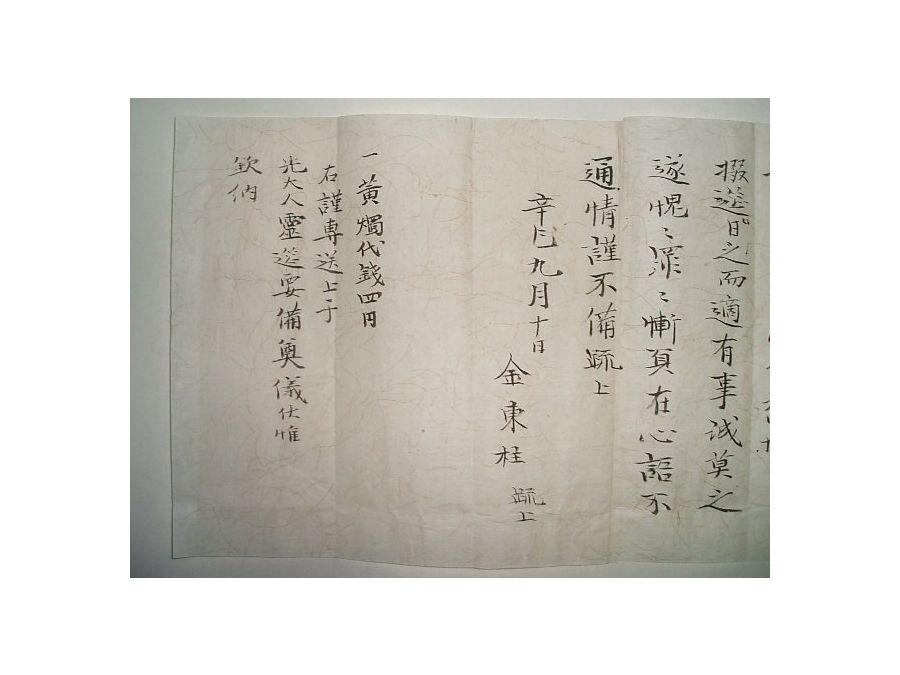 掇筵日之而適有事誠莫之
遂愧〻罪〻慚負在心語不
通情謹不備疏上
辛巳九月十日
金東柱 疏上
一黃燭代錢四円
右謹專送上于
先大人靈筵要備奠儀伏惟
欽納